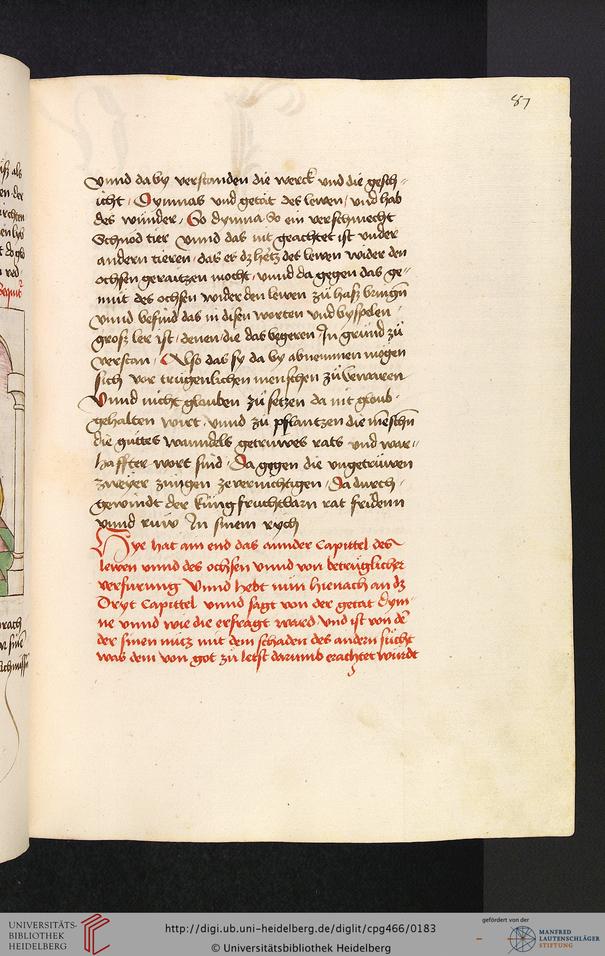 87
vnnd daby verstanden die werck vnd die gesch-
icht / Dymnas vnd getät des lewen / vnd hab
des wunder / So dymna So ein verschmecht
Schnöd tier vnnd das nit geachtet ist vnder
andern tieren / das er dz hertz des lewen wider den
ochsen geraitzen mocht / vnnd da gegen das ge-
müt des ochsen wider den lewen zü hasz bringn
vnnd befind das in disen worten vnd byspelen
grosz ler ist / denen die das begeren In grund zü
verstan / Also das sy da by abnemmen mögen
sich vor trugenlichen menschen zü bewaren
Vnnd nicht glauben zü setzen da nit gloub-
gehalten wirt / vnnd zü pflantzen die menschn
die güttes wanndels getrüwes rats vnd war-
haffter wort sind / Da gegen die vngetrüwen
zweyer zungen ze vernichtigen / Da durch
gewindt der küng fruchtbarn rat friden
vnnd ruw In sinem rych
Hye hat am end das annder Capittel des
lewen vnnd des ochsen vnnd von betrüglicher
verfürung Vnnd hebt nun hienach an dz
Dryt Capittel vnnd sagt von der getät dym-
ne vnnd wie die erfragt ward vnd ist von de
der sinen nutz mit dem schaden des andern sücht
was dem von got zü letst darumb erachtet würdt
UNIVERSITÄTS-
BIBLIOTHEK
HEIDELBERG
http://digi.ub.uni-heidelberg.de/diglit/cpg466/0183
© Universitätsbibliothek Heidelberg
gefördert von der
MANFRED
LAUTENSCHLÄGER
STIFTUNG